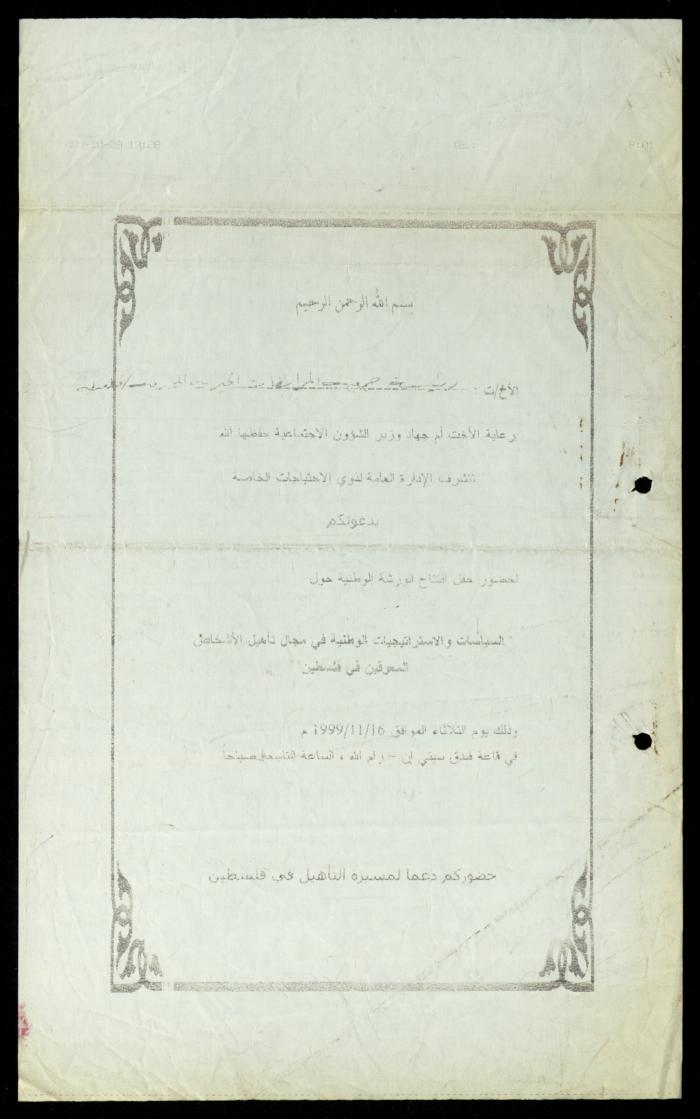 بسم الله الرحمن الرحيم
الأخ/ت : رئيسة جمعية المرابطات الخيرية
رعاية الأخت أم جهاد وزير الشؤون الاجتماعية حفظها الله
تتشرف الإدارة العامة لذوي الاحتياجات الخاصة
بدعوتكم
لحضور حفل افتتاح الورشة الوطنية حول
" السياسات والاستراتيجيات الوطنية في مجال تأهيل الأشخاص
المعوقين في فلسطين "
وذلك يوم الثلاثاء الموافق 1999/11/16 م
في قاعة فندق سيتي إن - رام الله ، الساعة التاسعة صباحاً
حضوركم دعما لمسيرة التأهيل في فلسطين